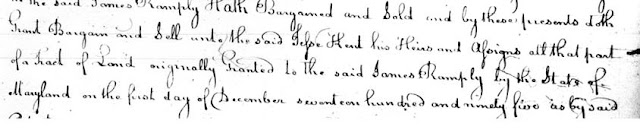 the said James Rumply Hath Bargained and Sold and by these presents doth
Grant Bargain and Sell unto the said Jesse Hent his Heirs and Assigns all that part
of a Tract of Land originally Granted to the said James Rumply by the State of
Maryland on the first day of December seventeen hundred and ninety five as by said